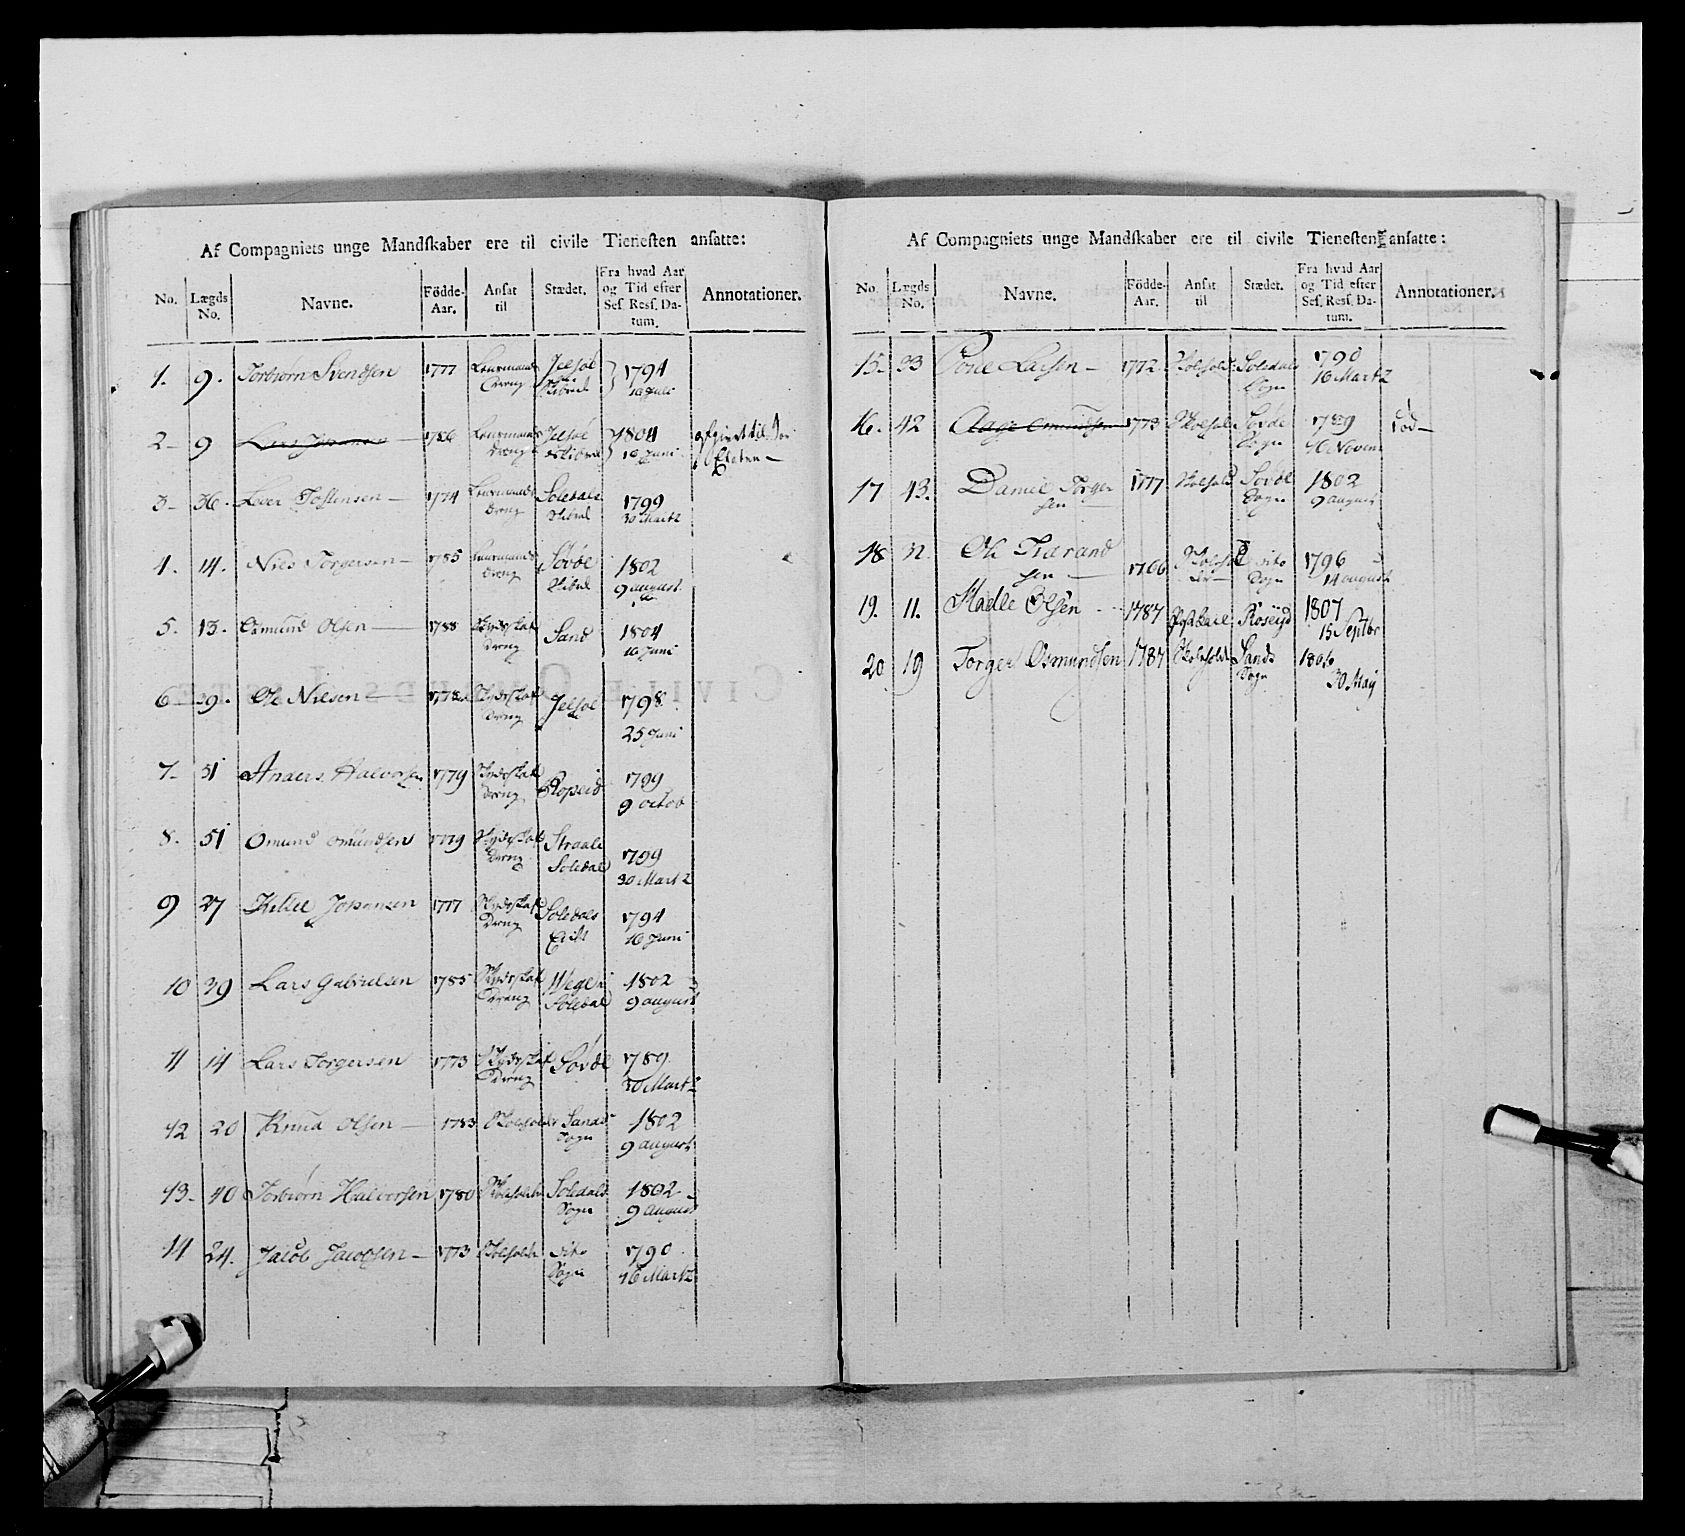 Af Compagniets unge Mandſkaber ere til civile Tieneſten anſatte:
No. Lægds No. Navne. Födde-Aar. Anſat til Stædet. Fra hvad Aar og Tid efter Seſ. Reſſ. Da-tum. Annotationer.
1. 9. Torbiörn Svendsen 1777 Lensmands Dreng Jelsöe Skibrd 1794
16 Juli
2 9 Lars 1786 Lensmands Dreng Jelsöe Skibrd 1804
16 Juni
3 36. Iver Tostensen 1774 Lensmands Dreng Soledals Skibrd 1799
30 Martz
4. 14. Niels Torgersen 1785 Lensmands Dreng Sövde Skibrd 1802
9 august
5. 13. Osmund Olsen 1788 Skydsskaf Dreng Sand 1804
16 Juni
6 39. Ole Nilsen 1778 Skydsskaf Dreng Jelsöe 1798
25 Juni
7 51 Anders Halvorsen 1779 Skydsskaf Dreng Ropeid 1799
9 octob
8. 51 Omund Omundsen 1779 Skydsskaf Dreng Straabe
Soledal 1799
30 Martz
9 27 Killee Johansen 1777 Skydsskaf Dreng Soledals 1794
16 Juni
10 39 Lars Gabrielsen 1785 Skydsskaf Dreng Wege i
Soledal 1802
9 august
11 14 Lars Torgersen 1773 Skydsskaf Dreng Sövde 1789
30 Martz
12 20 Knud Olsen 1783 Skoleholder Sands
Sogn 1802
9 august
13 40 Torbiörn Halvorsen 1780 Skoleholder Soledals
Sogn 1802
9 august
14 24. Jacob Jacobsen 1773 Skoleholder dito
Sogn 1790
16 Martz
Af Compagniets unge Mandſkaber ere til civile Tieneſten anſatte:
No. Lægds No. Navne. Födde-Aar. Anſat til Stædet. Fra hvad Aar og Tid efter Seſ. Reſſ. Da-tum. Annotationer.
15. 33 Poul Larsen 1772 Skolehold Soledals
Sogn 1790
16 Martz
16. 42 Aage Omundsen 1773 Skolehol Sövde
Sogn 1789
Novem död
17 43. Daniel Torger
sen 1777 Skolehold Sövde
Sogn 1802
9 august
18 Ole Tiærand
sen 1766 Skolehol
der dito
Sogn 1796
14 august
19. 11. Madle Olsen 1787 Postkarl Röseyd 1807
15 Septbr
20 19 Torger Osmundsen 1787 Skolehold Sands
Sogn 1806
30 May